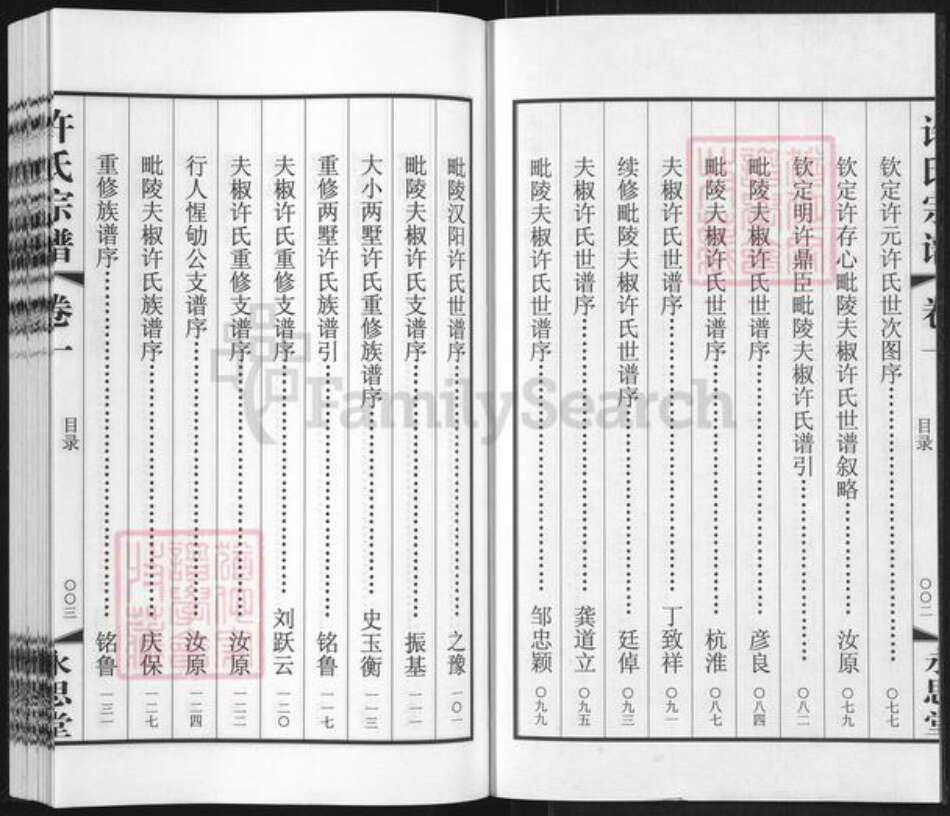 许氏宗谱 卷一 目录 〇〇二 永思堂
钦定许元许氏世次图序 〇七七
钦定许存心毗陵夫椒许氏世谱叙略 汝原 〇七九
钦定明许鼎臣毗陵夫椒许氏谱引 〇八二
毗陵夫椒许氏世谱序 彦良 〇八四
毗陵夫椒许氏世谱序 杭淮 〇八七
夫椒许氏世谱序 丁致祥 〇九一
续修毗陵夫椒许氏世谱序 廷倬 〇九三
夫椒许氏世谱序 龚道立 〇九五
毗陵夫椒许氏世谱序 邹忠颖 〇九九
毗陵汉阳许氏世谱序 之豫 一〇一
毗陵夫椒许氏支谱序 振基 一一一
大小两墅许氏重修族谱序 史玉衡 一一三
重修两墅许氏族谱引 铭鲁 一一七
夫椒许氏重修支谱序 刘跃云 一二〇
夫椒许氏重修支谱序 汝原 一二二
行人惺劬公支谱序 汝原 一二四
毗陵夫椒许氏族谱序 庆保 一二七
重修族谱序 铭鲁 一三一
许氏宗谱 卷一 目录 〇〇三 永思堂
FamilySearch